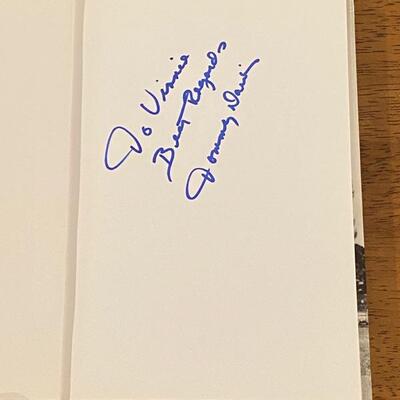 To Vinnie
Best Regards
Tommy Davis